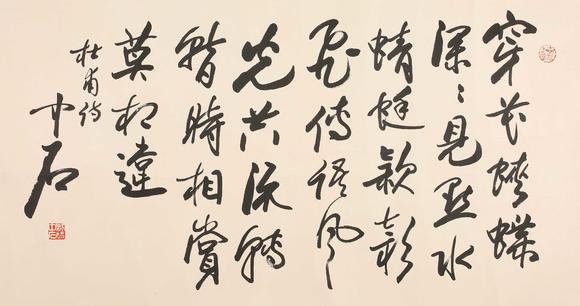 穿花蛺蝶
深〻見点水
蜻蜓款款
飛傳語風
光共流轉
暫時相賞
莫相違
杜甫詩
中石